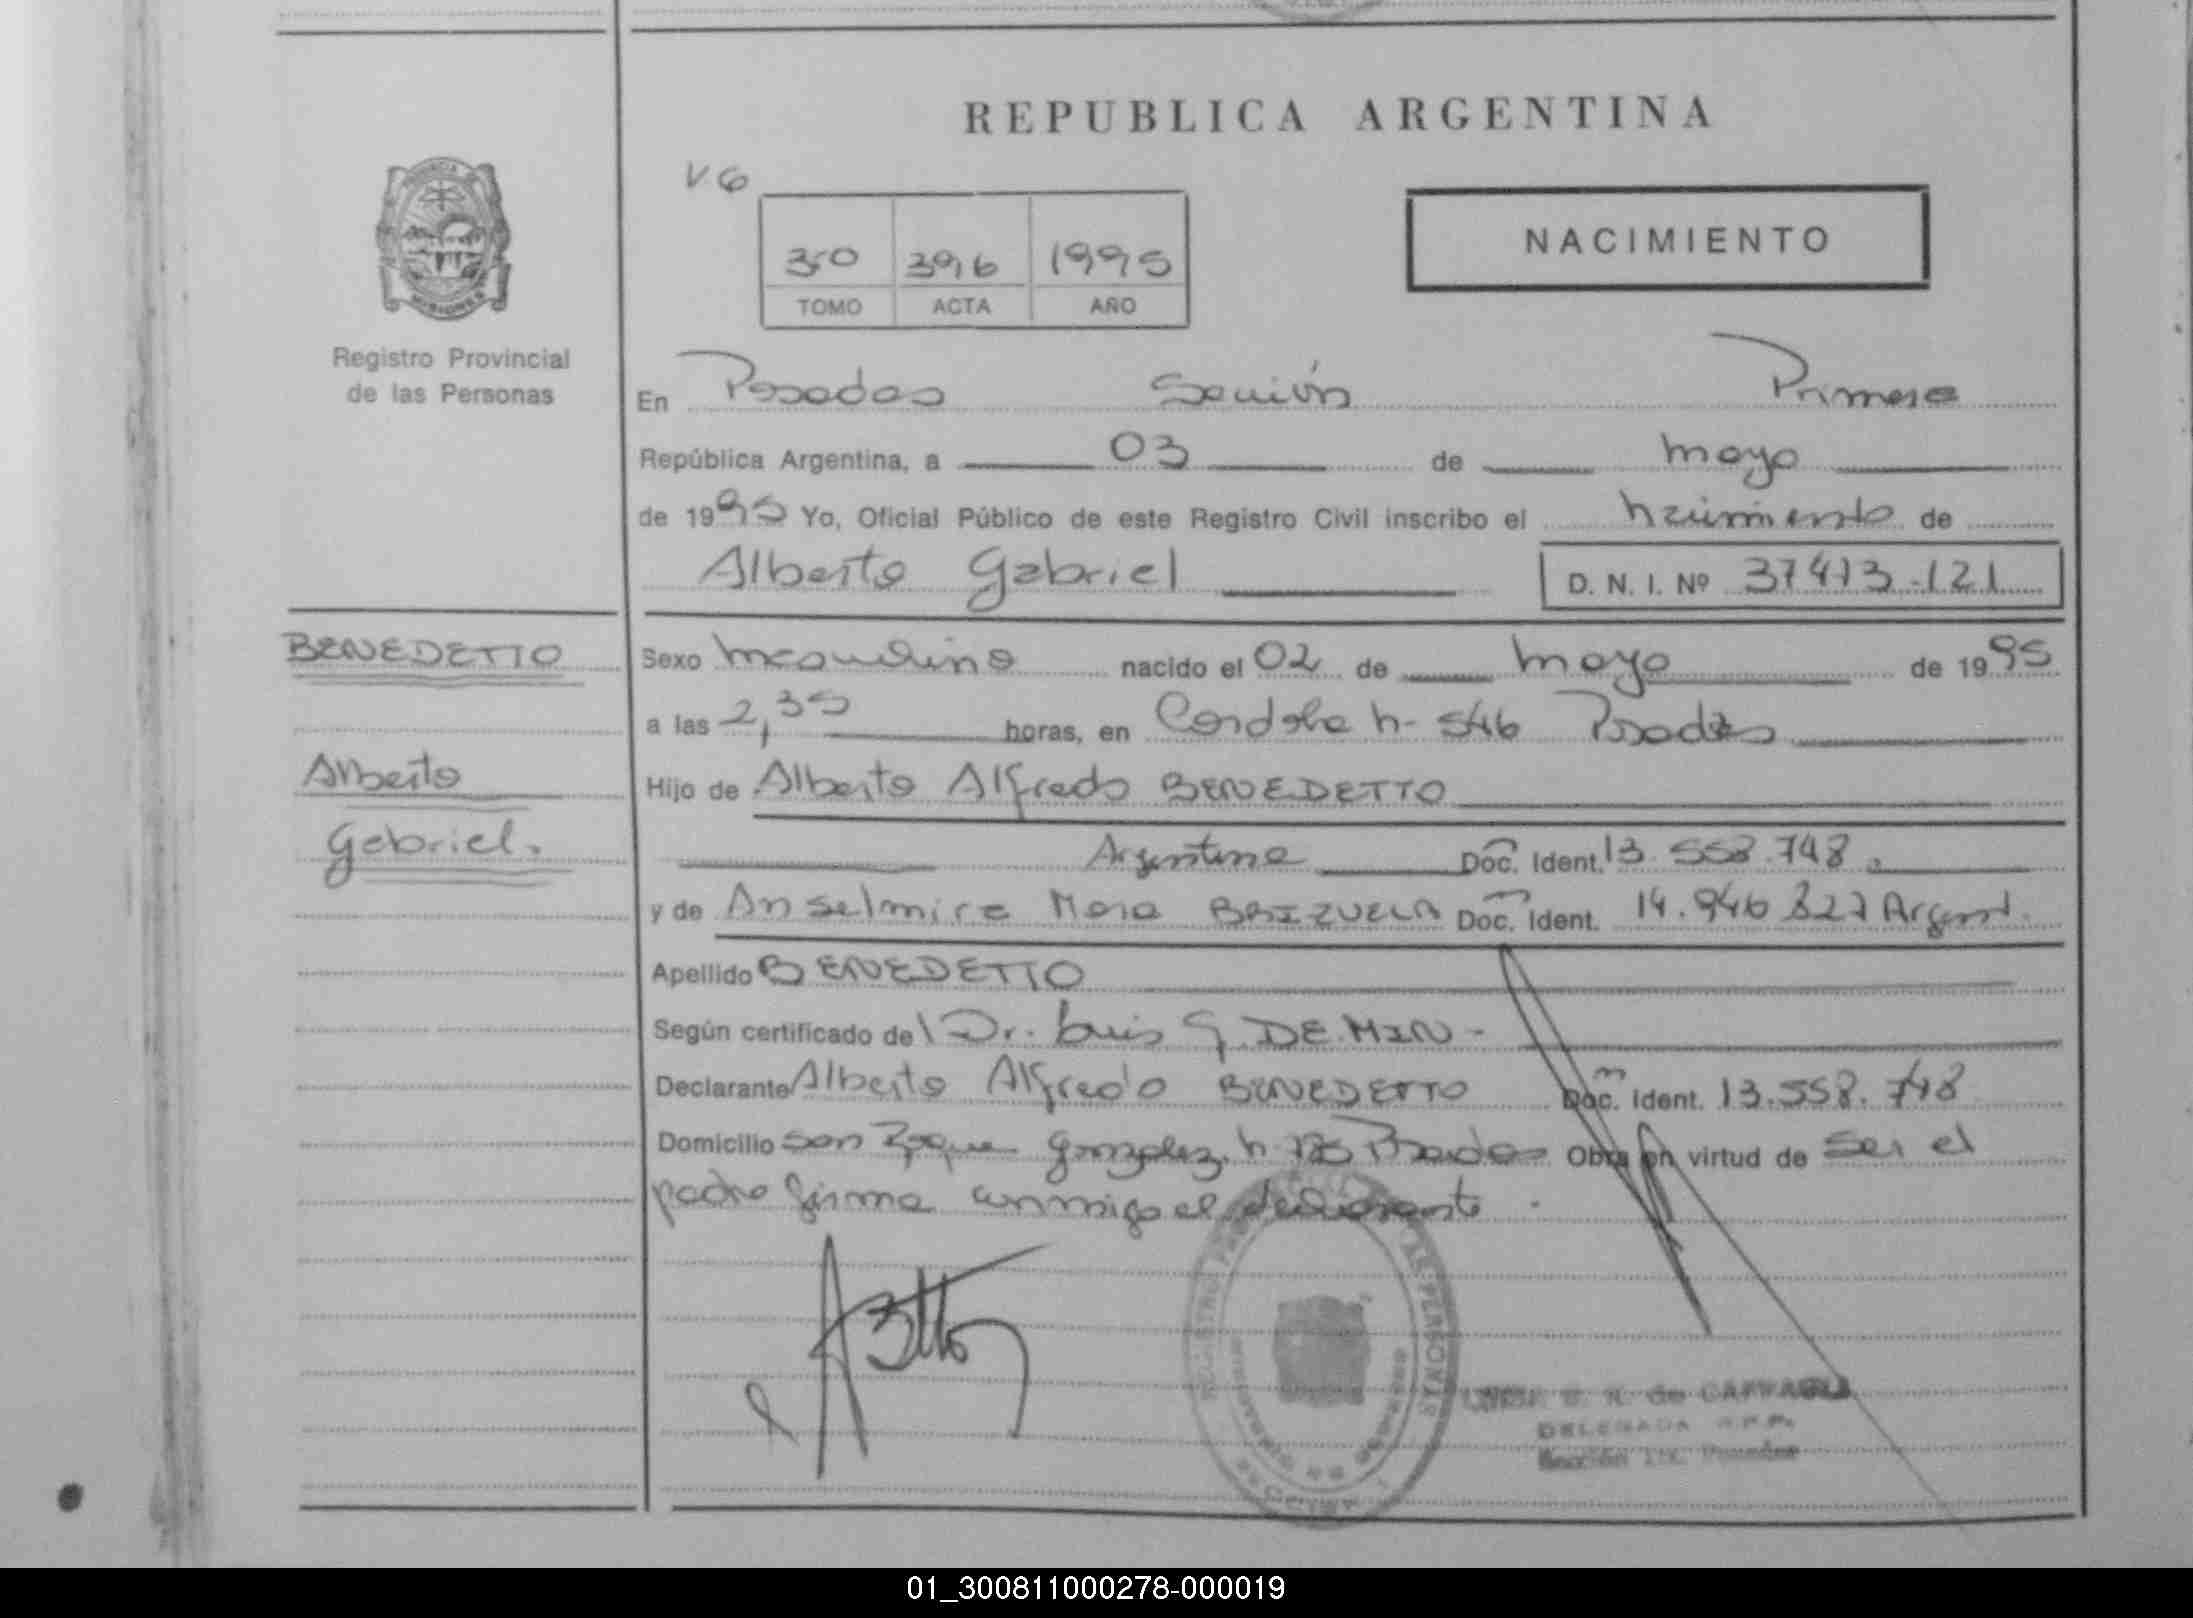 REPUBLICA ARGENTINA
V. 6
350 396 1995
TOMO ACTA AÑO
NACIMIENTO
MISIONES
Registro Provincial
de las Personas
En Posadas Sección Primera
República Argentina, a 03 de mayo
de 1995 Yo, Oficial Público de este Registro Civil inscribo el nacimiento de
Alberto Gabriel D. N. I. Nº 37413.121
BENEDETTO
Alberto
Gabriel.
Sexo masculino nacido el 02 de mayo de 1995
a las 2,35 horas, en Cordoba n- 546 Posadas
Hijo de Alberto Alfredo BENEDETTO
Argentina Doc. Ident. 13.558.748
y de Anselmira BRIZUELA Doc. Ident. 14.946 827 Argent.
Apellido BENEDETTO
Según certificado del Dr. Luis G. DE MIN -
Declarante Alberto Alfredo BENEDETTO Doc. Ident. 13.558.748
Domicilio San Roque Gonzalez n Posadas Obra en virtud de ser el
padre firma conmigo el declarante.
REGISTRO LAS PERSONAS
DELEGADA R.P.P.
Sección 1ra. Posadas
01_300811000278-000019